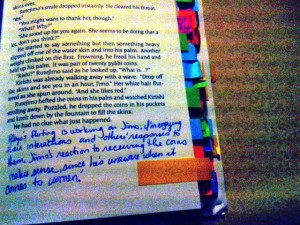 Rutejìmo's smile dropped instantly. He cleared his throat.
"Yes."
"You might want to thank her, though."
"What? Why?"
"She stood up for you again. She seems to be doing that a
lot, don't you think?"
He started to say something but then something heavy
out of the water skin and into his palm. Another
weight climbed on the first. Frowning, he freed his hand and
up his palm. It was pair of twenty pyābi coins.
Rutejìmo said as he looked up, "What is...?"
was already walking away with a wave. "Drop off
the skins and see you in an hour, Jimo." Her white hair
as she spun around. "And she likes red."
Rutejìmo hefted the coins in his palm and watched
walking away. Puzzled, he dropped the coins in his pockets
and knelt down by the fountain to fill the skins.
He had no clue what just happened.
flirting is working on Jimo,
his interactions and others' responses to
them. Jimo's reaction to receiving the coins
makes sense, since he's unaware when it
comes to women.